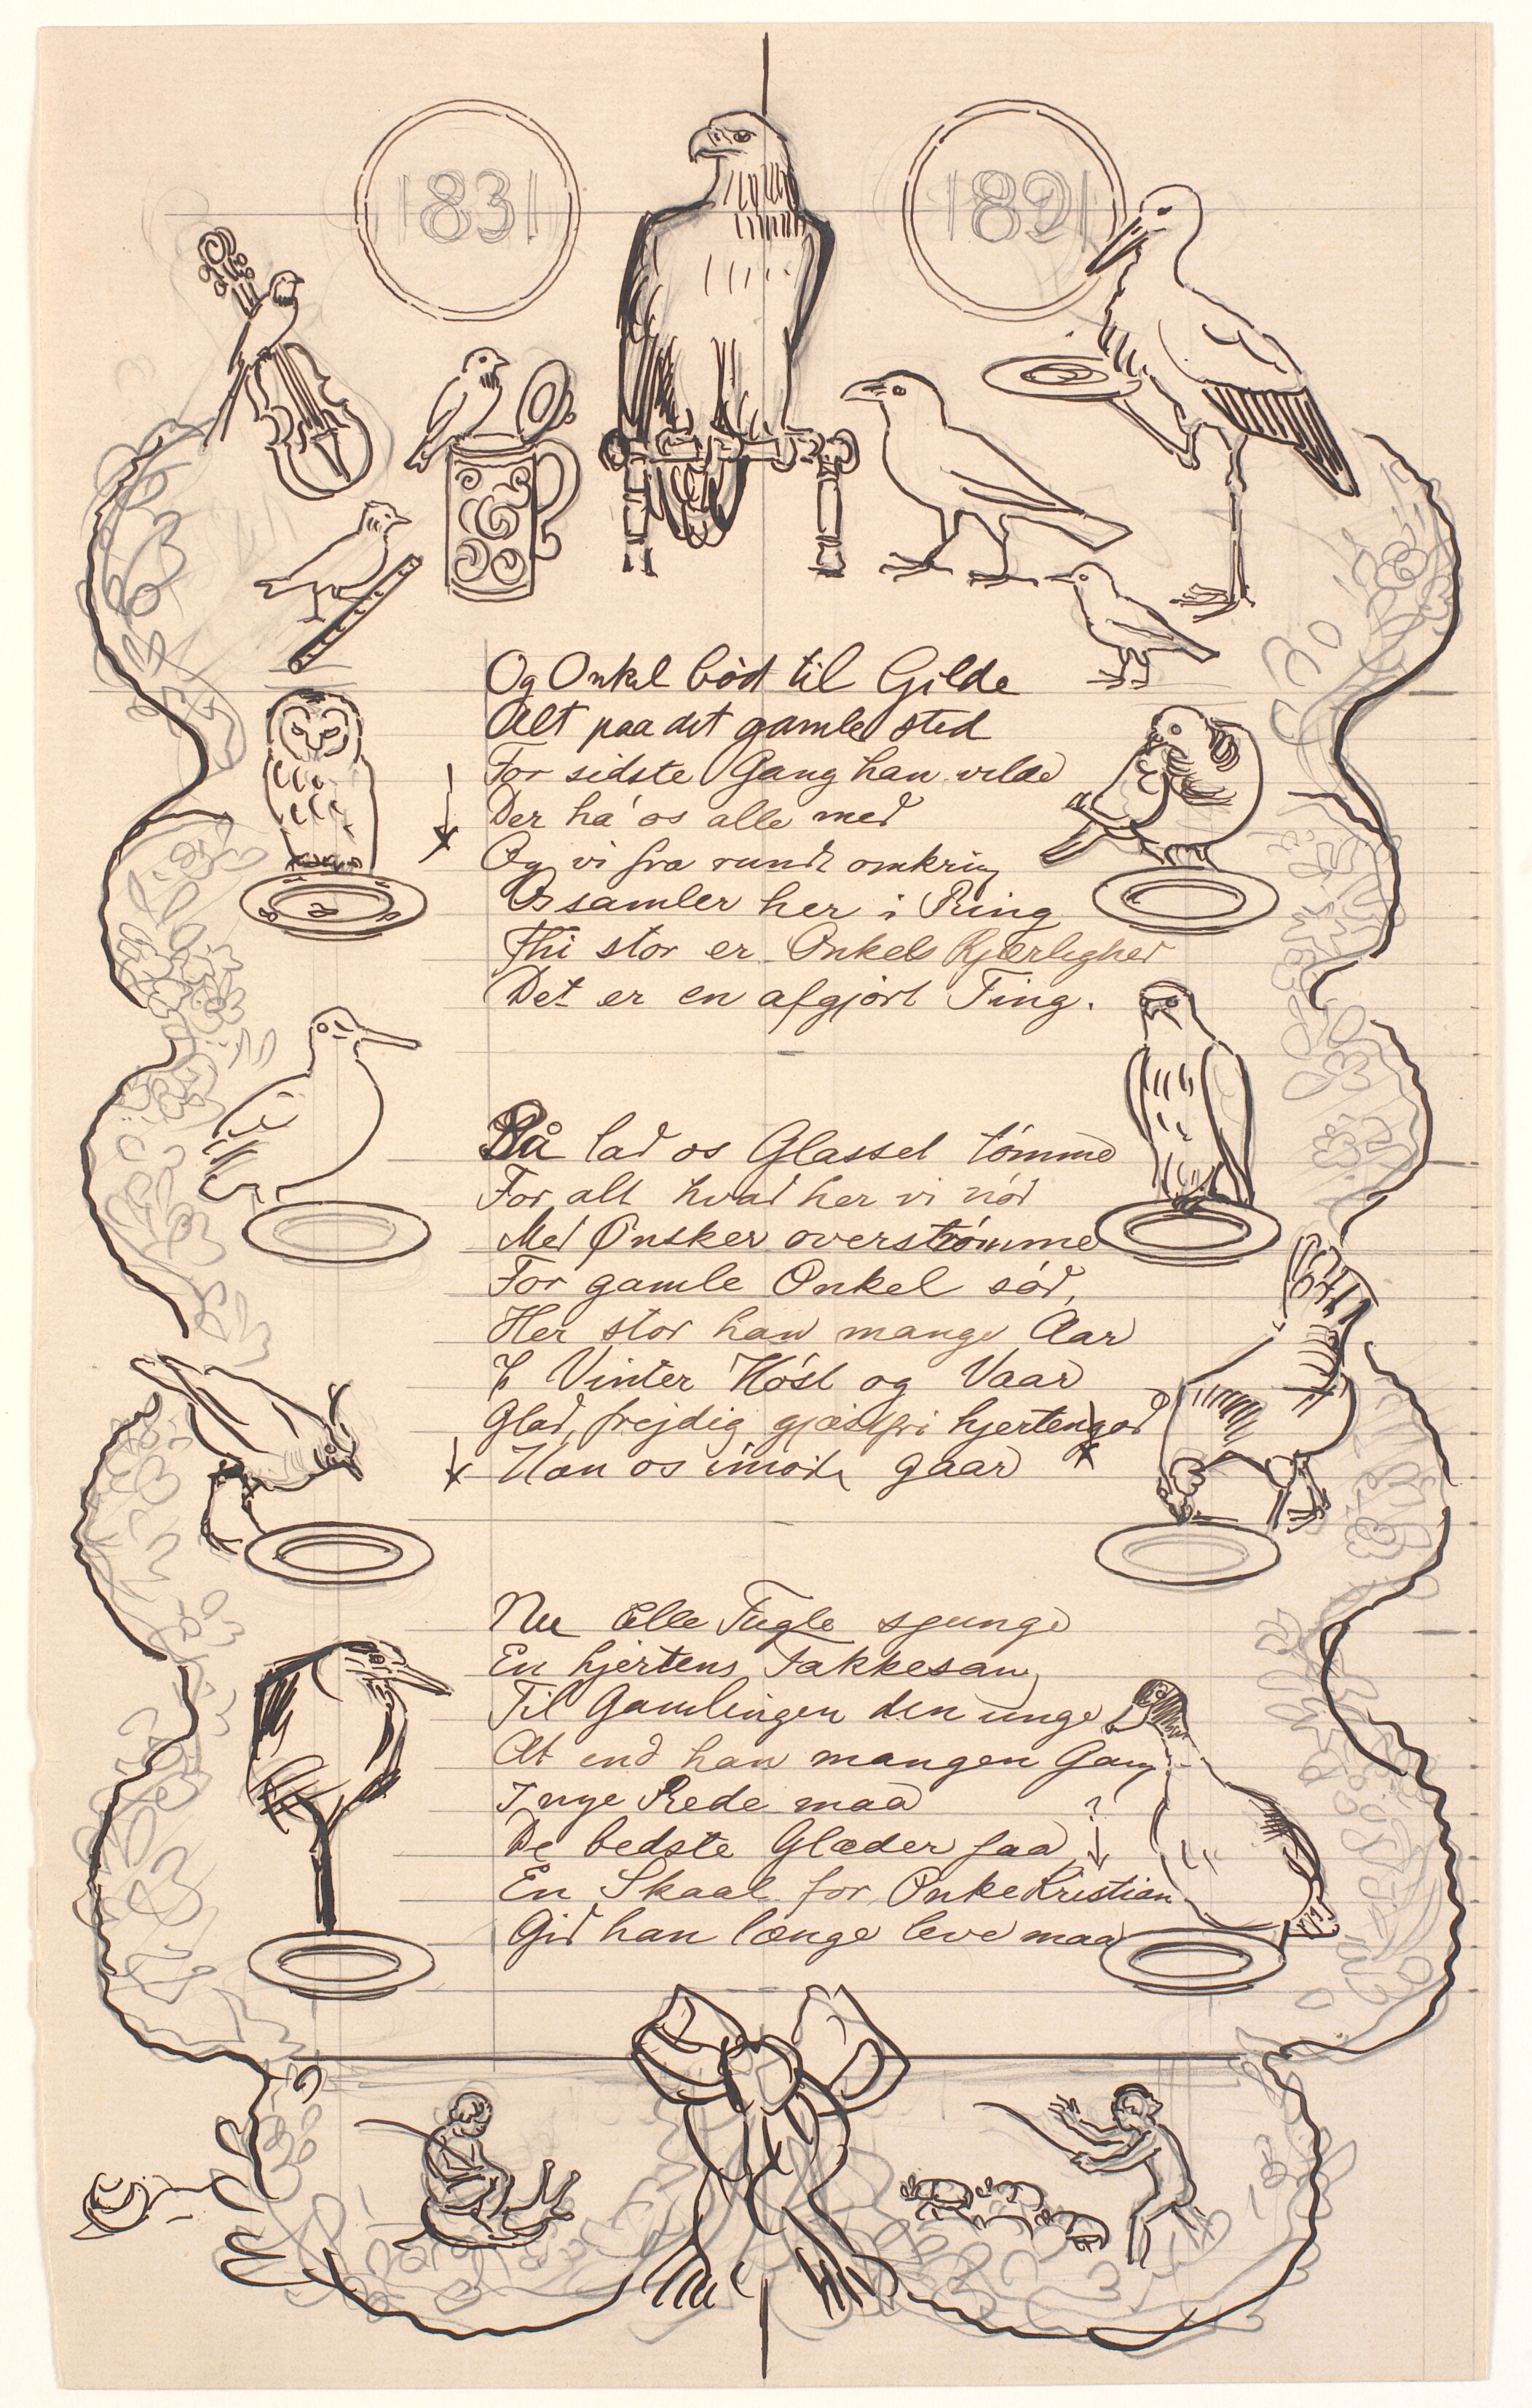 1831 1891
Og Onkel bød til Gilde
Alt paa det gamle sted
For sidste Gang han vilde
Der ha' os alle med
Og vi fra rundt omkring
Os samler her i Ring
Thi stor er Onkels Kjærlighed
Det er en afgjort Ting.
Så lad os Glasset tømme
For alt hvad her vi nød
Med Ønsker overstrømme
For gamle Onkel sød,
Her stod han mange Aar
I Vinter Høst og Vaar
Glad, frejdig gjæstfri hjertengod
Han os imøde gaar
Nu Alle Fugle sjunge
En hjertens Takkesang
Til Gamlingen den unge
At end han mangen Gang
I nye Rede maa
?
De bedste Glæder faa
En Skaal for Onke Kristian
Gid han længe leve maa